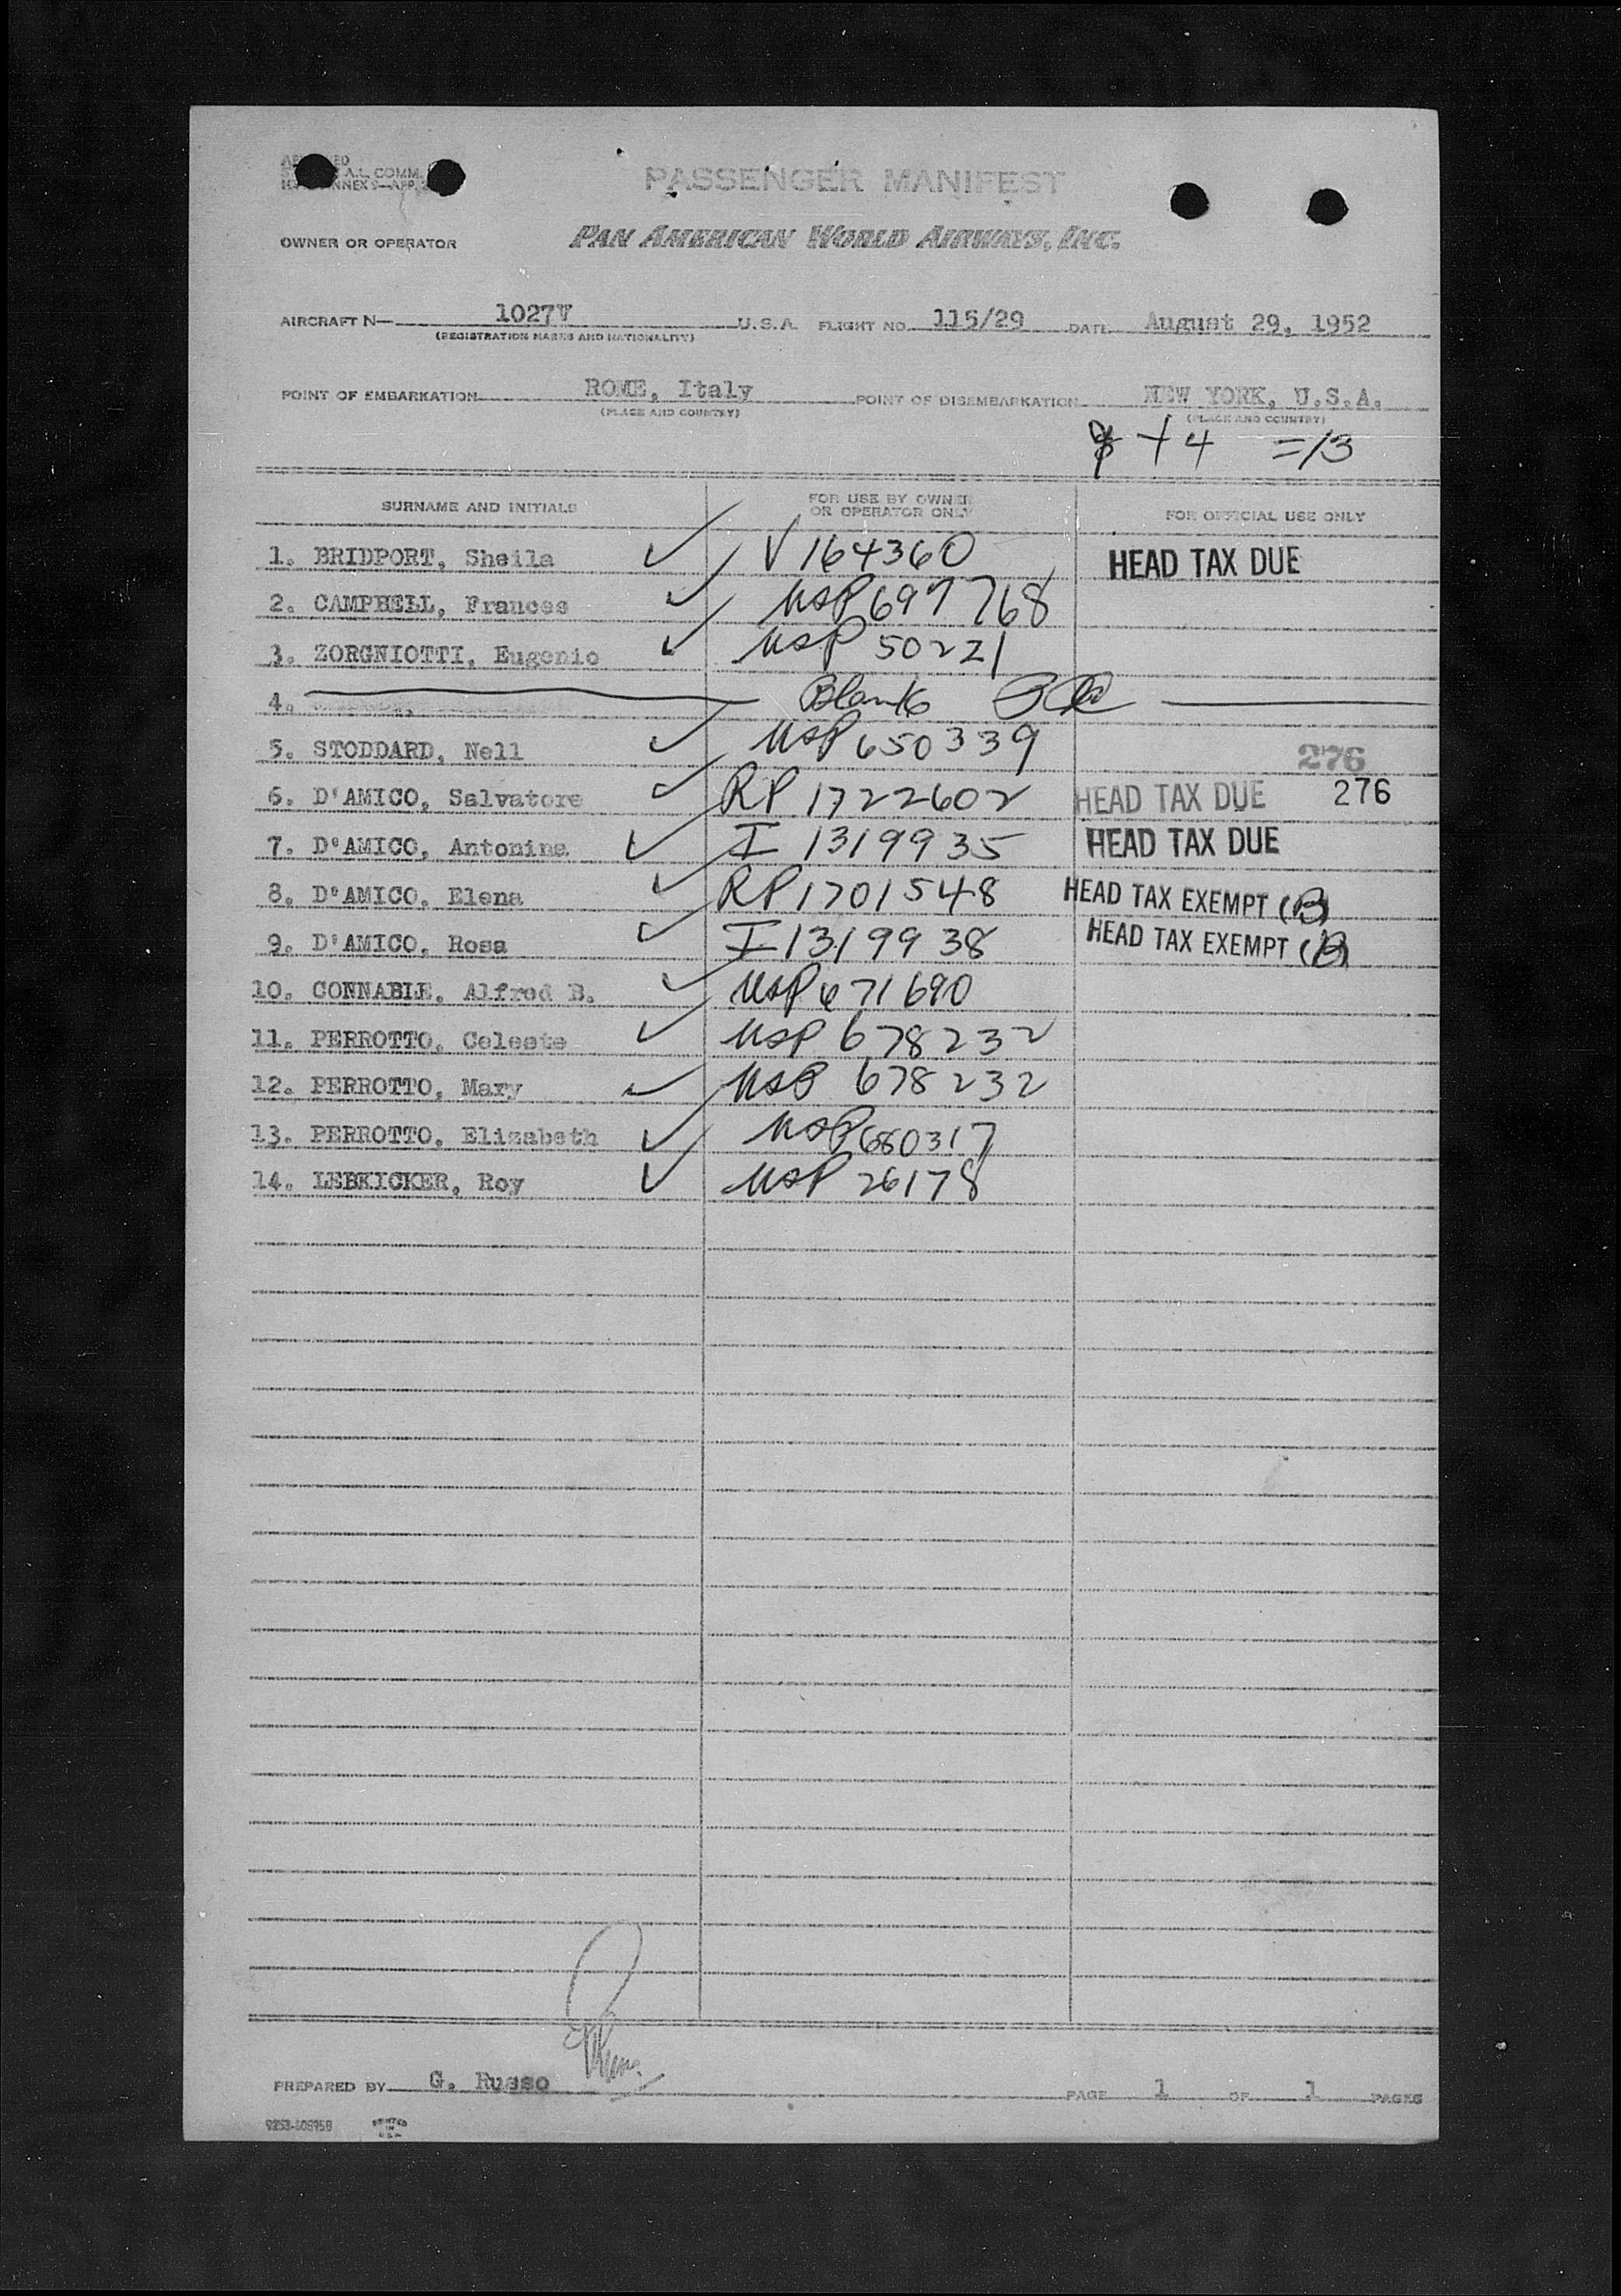 A.L. COMM.
PASSENGER MANIFEST
OWNER OR OPERATOR PAN AMERICAN WORLD AIRWAYS, INC.
AIRCRAFT N— 1027V U.S.A. FLIGHT NO. 115/29 DATE August 29, 1952
(REGISTRATION MARKS AND NATIONALITY)
POINT OF EMBARKATION ROME, Italy POINT OF DISEMBARKATION NEW YORK, U.S.A.
(PLACE AND COUNTRY) (PLACE AND COUNTRY)
+ 4 = 13
SURNAME AND INITIALS FOR USE BY OWNER OR OPERATOR ONLY FOR OFFICIAL USE ONLY
1. BRIDPORT, Sheila ✓ V 164360 HEAD TAX DUE
2. CAMPBELL, Frances ✓ USP 697768
3. ZORGNIOTTI, Eugenio ✓ USP 50221
4. Blank
5. STODDARD, Nell ✓ USP 650339 276
6. D'AMICO, Salvatore ✓ RP 1722602 HEAD TAX DUE 276
7. D'AMICO, Antonina ✓ I 1319935 HEAD TAX DUE
8. D'AMICO, Elena ✓ RP 1701548 HEAD TAX EXEMPT (B)
9. D'AMICO, Rosa ✓ I 1319938 HEAD TAX EXEMPT (B)
10. CONNABLE, Alfred B. ✓ USP 671690
11. PERROTTO, Celeste ✓ USP 678232
12. PERROTTO, Mary ✓ USP 678232
13. PERROTTO, Elizabeth ✓ USP 680317
14. LEBKICKER, Roy ✓ USP 26178
PREPARED BY G. Russo PAGE 1 OF 1 PAGES
PRINTED IN U.S.A.